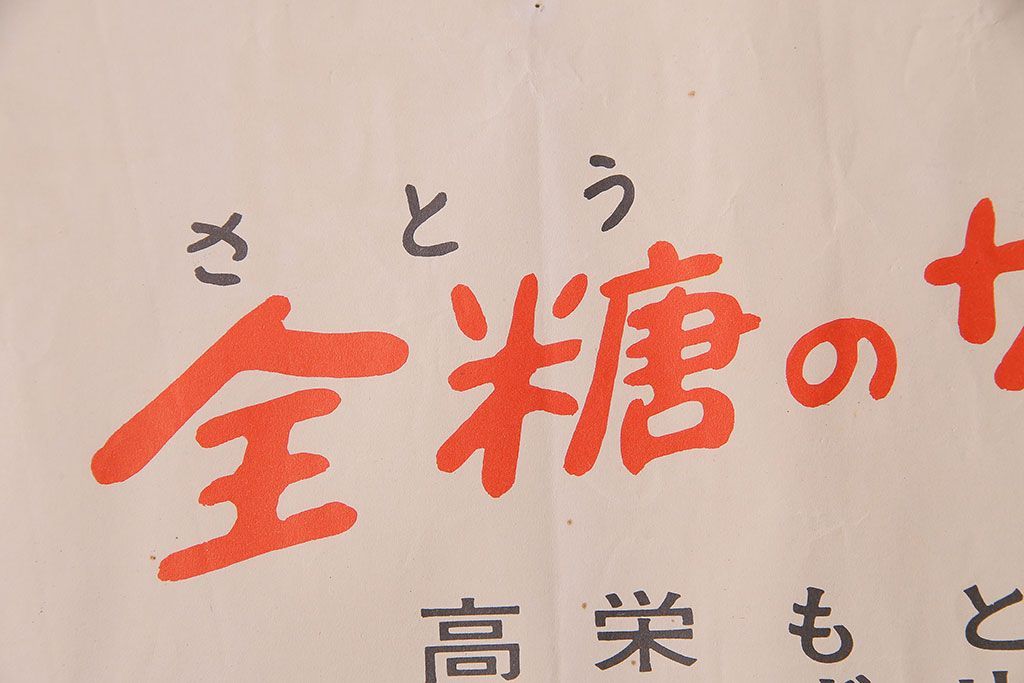 さとう
全糖の
高栄もと